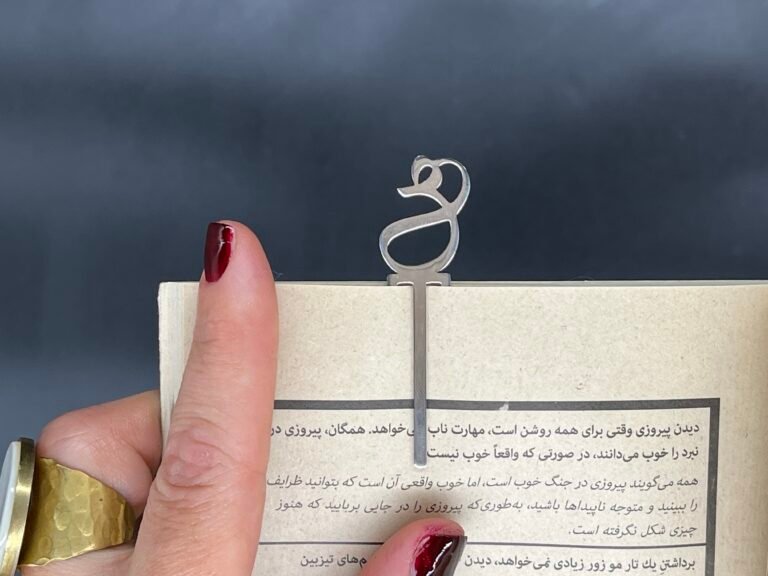 دیدن پیروزی وقتی برای همه روشن است، مهارت ناب نمی‌خواهد. همگان، پیروزی در
نبرد را خوب می‌دانند، در صورتی که واقعاً خوب نیست
همه می‌گویند پیروزی در جنگ خوب است، اما خوب واقعی آن است که بتوانید ظرایف
را ببینید و متوجه ناپیداها باشید، به‌طوری‌که پیروزی را در جایی بربایید که هنوز
چیزی شکل نگرفته است.
برداشتنِ یك تار مو زور زیادی نمی‌خواهد، دیدن تیزبین